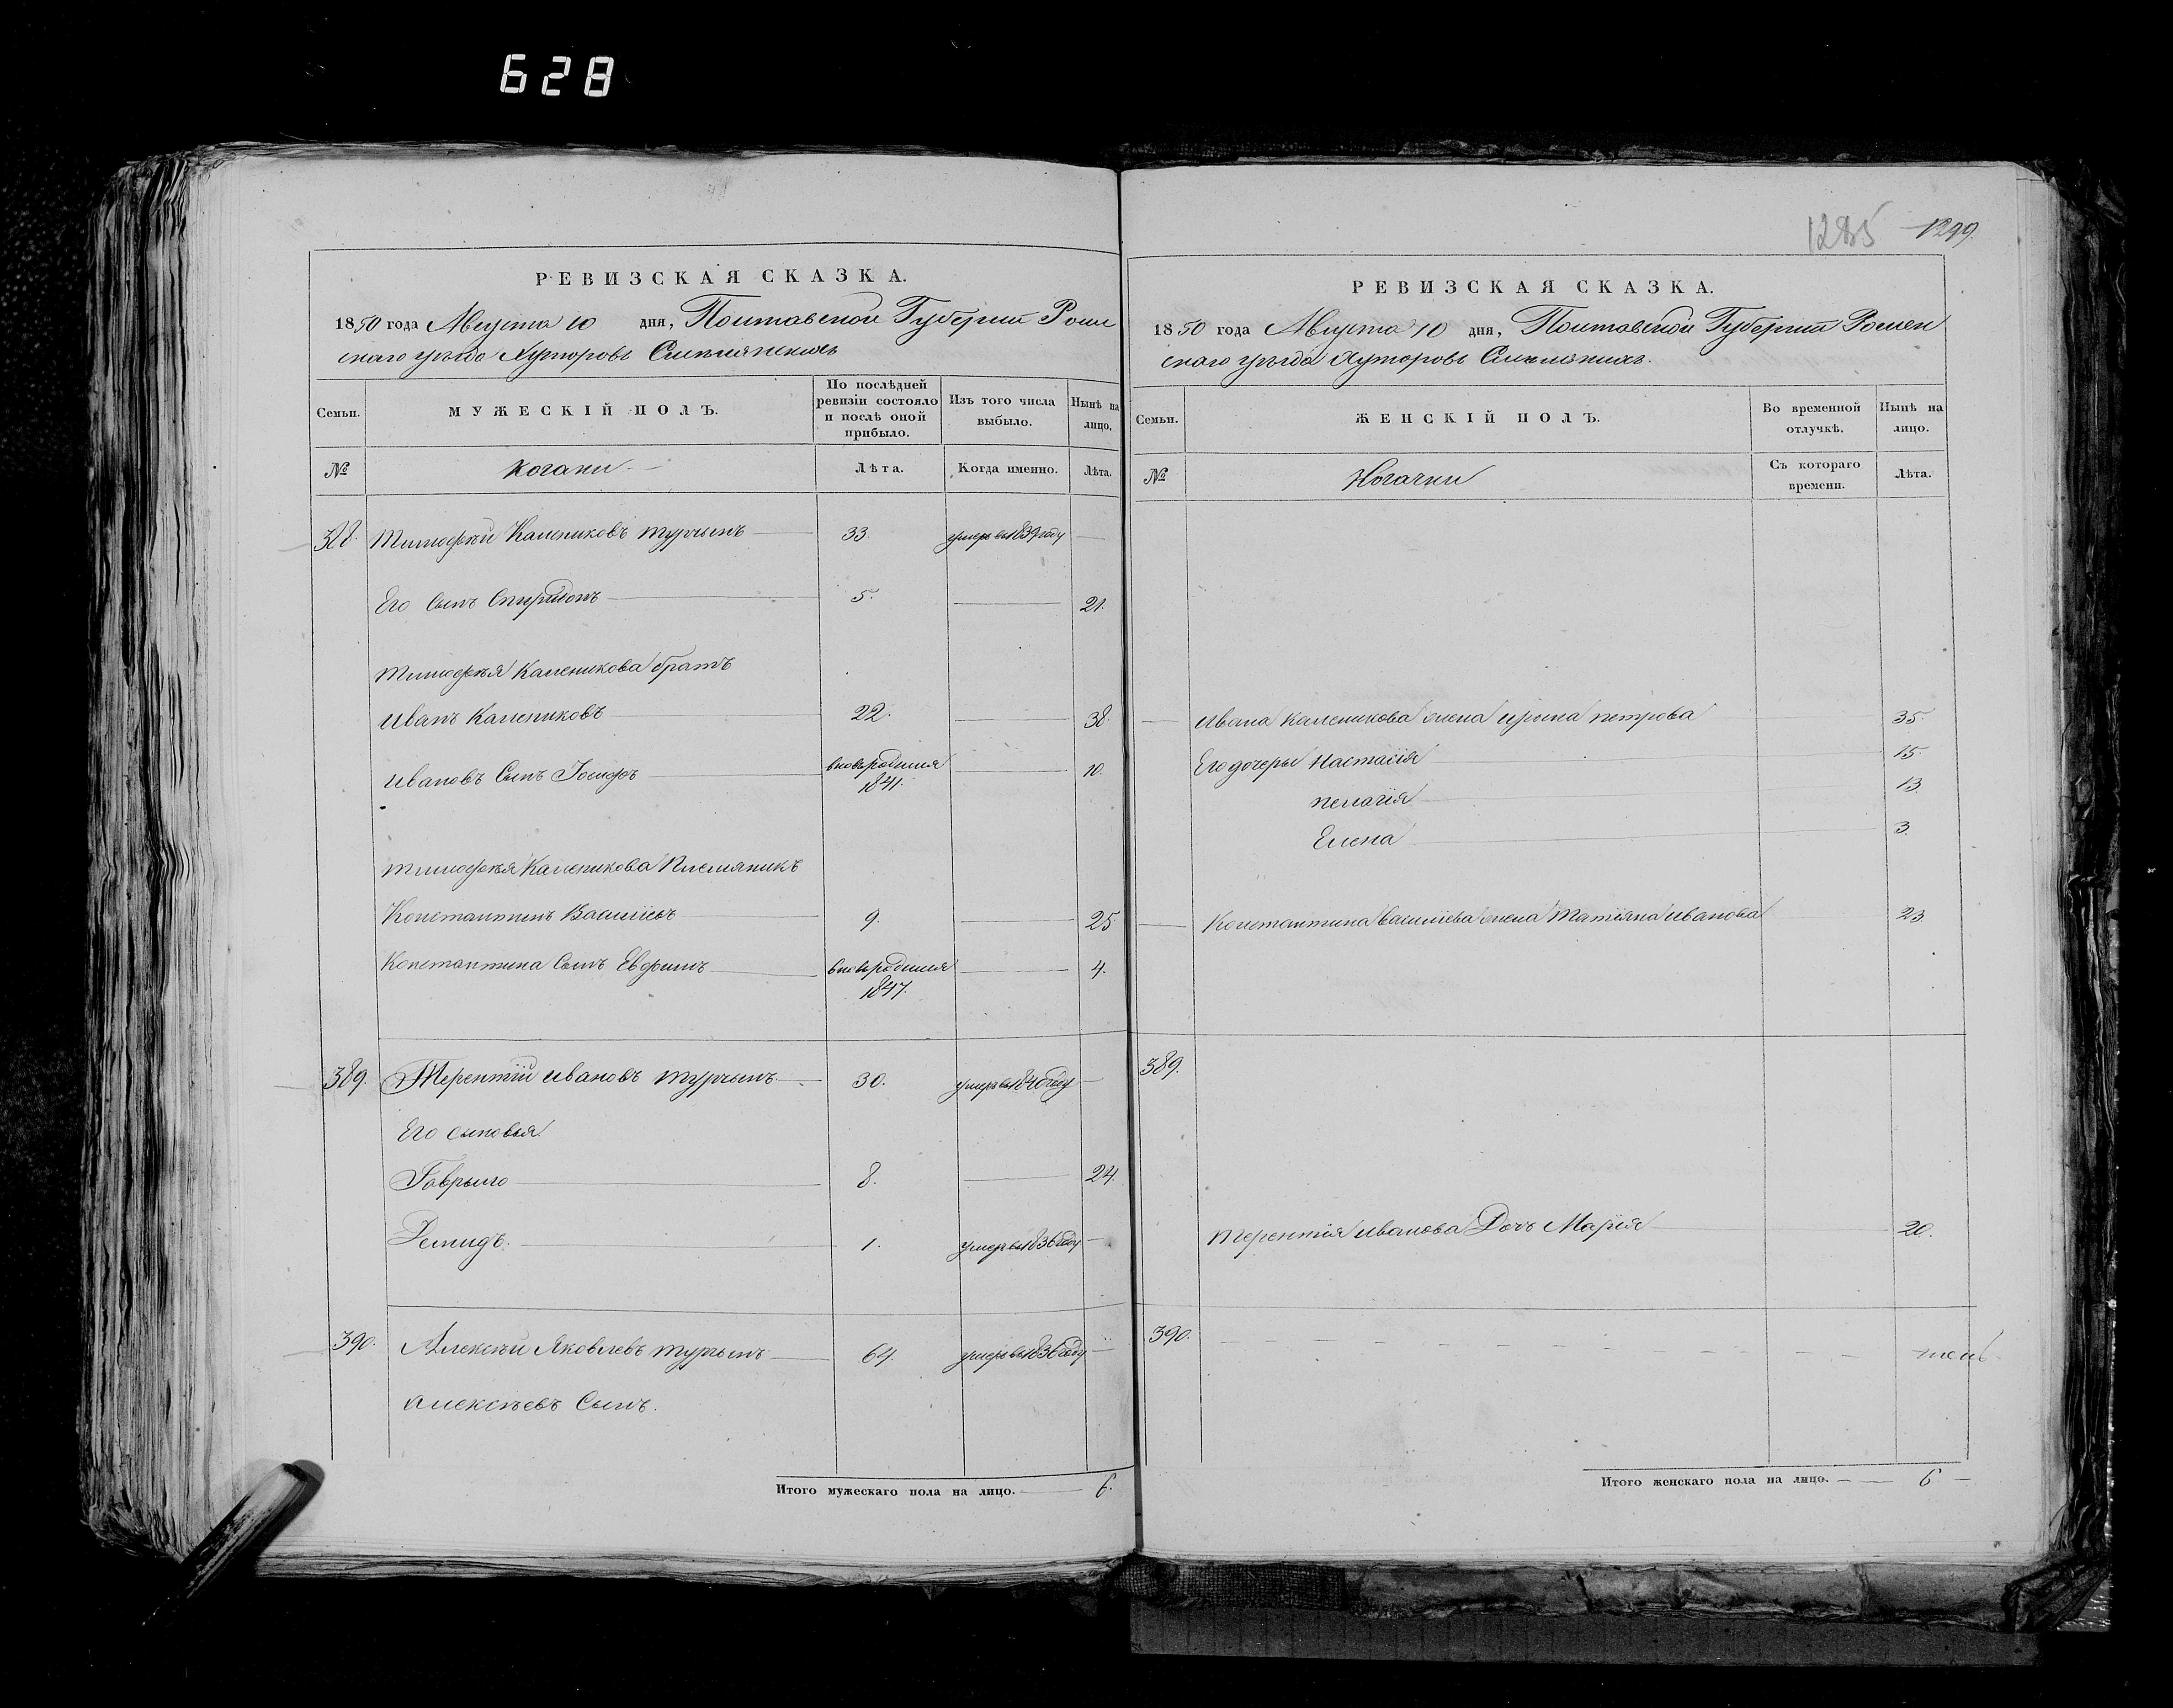 628
РЕВИЗСКАЯ СКАЗКА.
1850 года Августа 10 дня, Полтавской Губернии Ромен
скаго уѣзда Хуторовъ
Семьи.
МУЖЕСКІЙ ПОЛЪ.
По послѣдней ревизіи состояло и послѣ оной прибыло.
Изъ того числа выбыло.
Нынѣ на лицо.
№
козаки
Лѣта.
Когда именно.
Лѣта.
388. Тимофѣй Калениковъ Турчынъ 33. умеръ въ 1839 году
Его Сынъ Спиридонъ 5. 21.
Тимофѣя Каленикова братъ
Иванъ Калениковъ 22. 38.
Ивановъ Сынъ Іосифъ вновьродился 1841. 10.
Тимофѣя Каленикова Племяникъ
Константинъ Василіевъ 9. 25
Константина Сынъ Евфимъ вновьродился 1847. 4.
389. Терентій Ивановъ Турчынъ 30. умеръ въ 1840 году
Его сыновья
Гаврыло 8. 24.
1. умеръ въ 1836 году
390. Алексѣй Яковлевъ Турчынъ 64. умеръ въ 1836 году
Алексѣевъ Сынъ.
Итого мужескаго пола на лицо. 6.
1285 1299.
РЕВИЗСКАЯ СКАЗКА.
1850 года Августа 10 дня, Полтавской Губерніи Ромен
скаго уѣзда Хуторовъ
Семьи.
ЖЕНСКІЙ ПОЛЪ.
Во временной отлучкѣ.
Нынѣ на лицо.
№
Козачки
Съ котораго времени.
Лѣта.
Ивана Каленикова жена Ирина Петрова 35.
Его дочеры Настасія 15.
Пелагія 13.
Елена 3.
Константина Василіева жена Татіяна Иванова 23
389.
Терентія Иванова Дочь Марія 20.
390.
Итого женскаго пола на лицо. 6